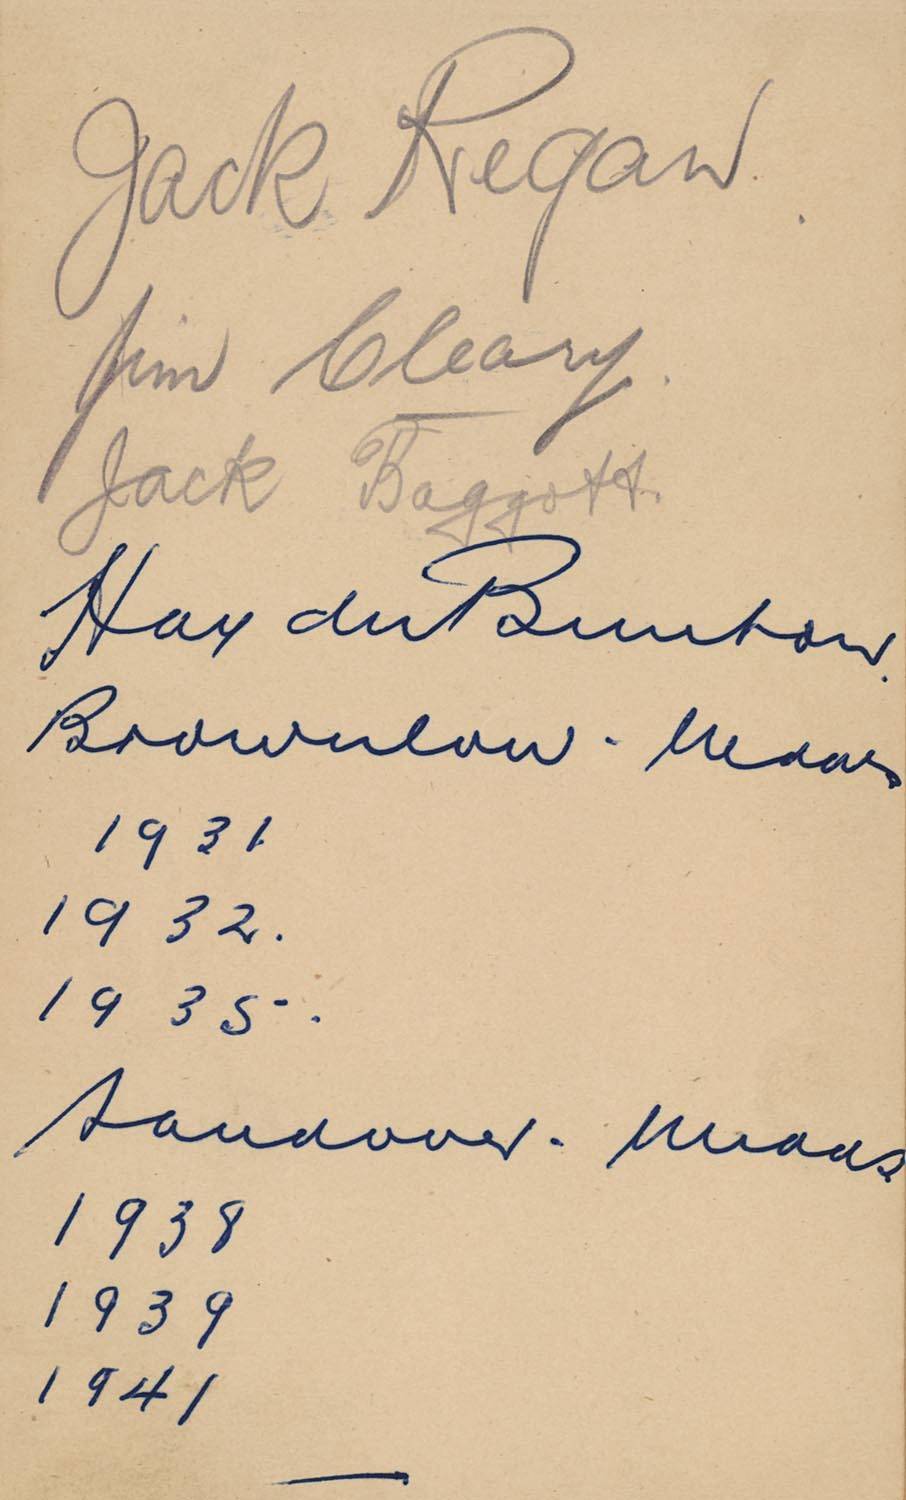 Jack Regan.
Jim Cleary.
Jack Baggott.
Hay du Bunton.
Brownlow - Medals
1931
1932.
1935-.
Sandover - Medals
1938
1939
1941